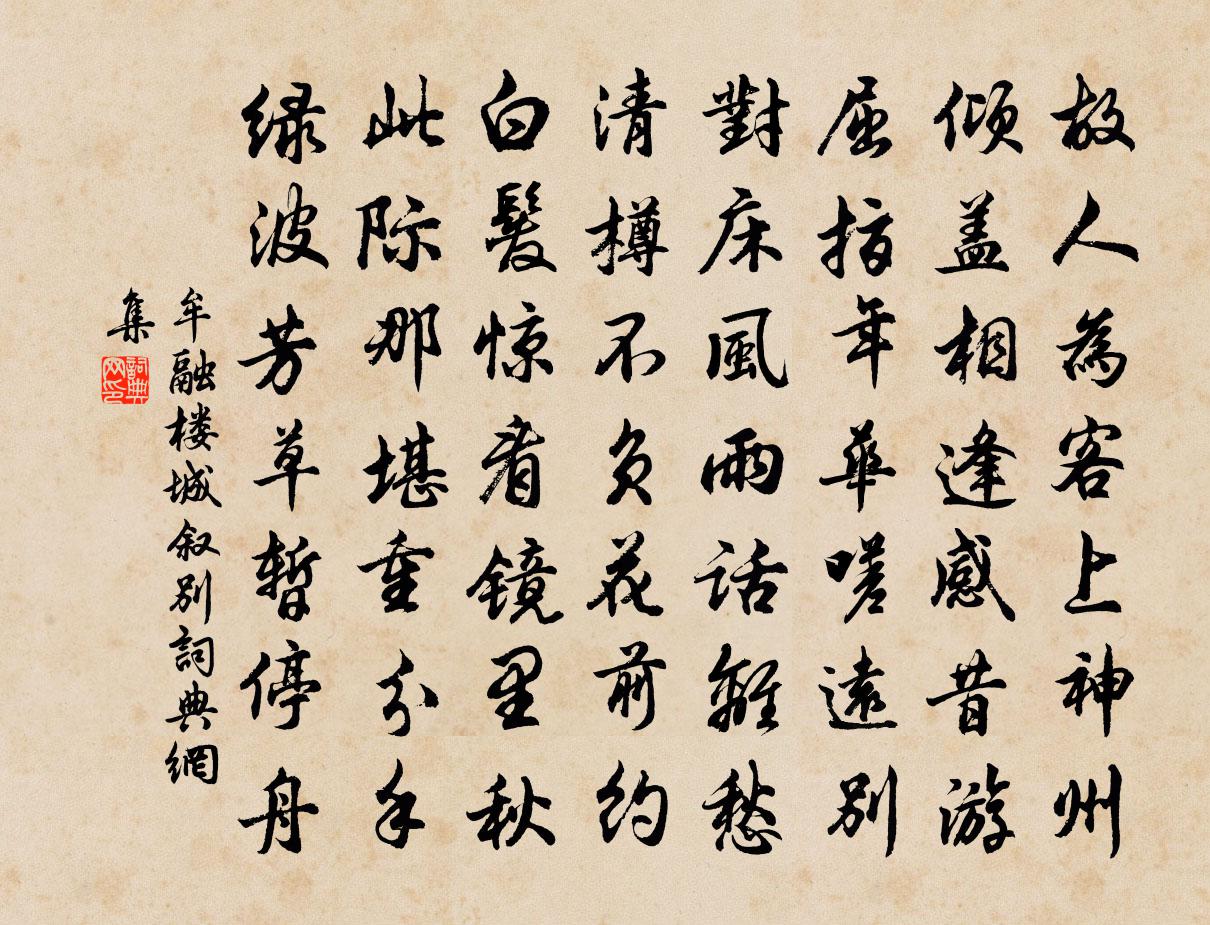 故人為客上神州
傾盖相逢感昔游
屈指年華嗟遠別
對床風雨話離愁
清樽不负花前约
白髮惊看镜里秋
此际那堪重分手
绿波芳草暂停舟
牟融楼城叙别詞典網
集
詞典网印